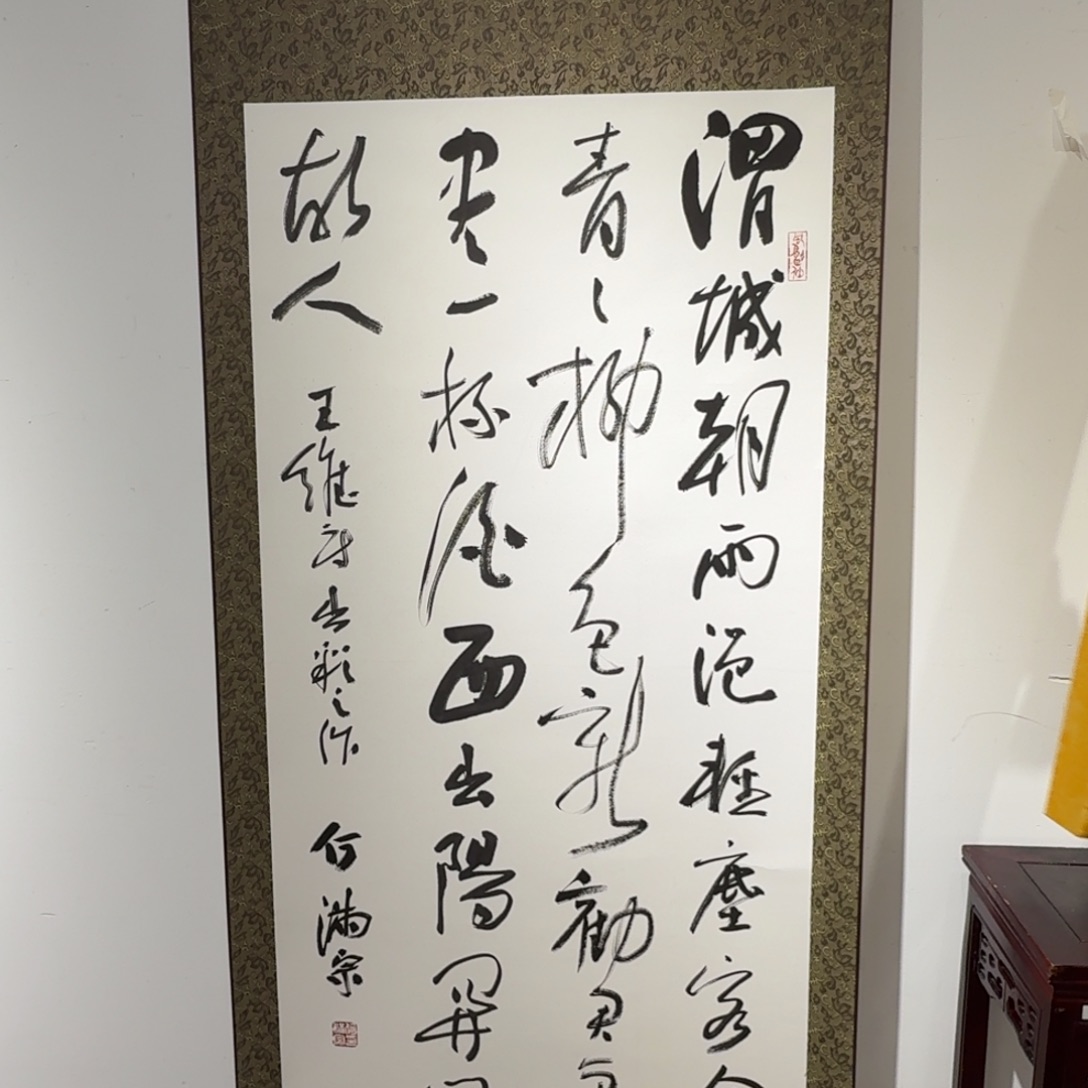 渭城朝雨浥輕塵客
青〻柳色新勸君
盡一杯酒西出陽關
故人
王維詩出塞之作
何滿宗